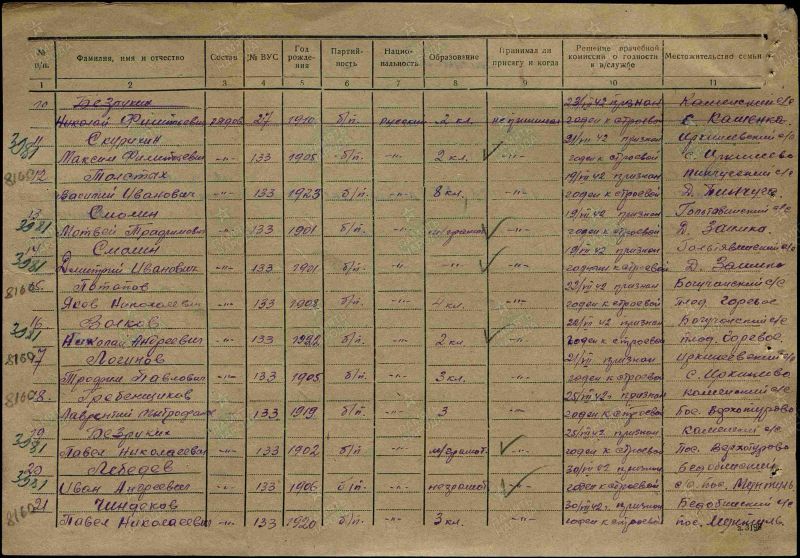 № п/п. Фамилия, имя и отчество Состав № ВУС Год рождения Партийность Национальность Образование Принимал ли присягу и когда Решение врачебной комиссии о годности в в/службе Местожительство семьи
1 2 3 4 5 6 7 8 9 10 11
10 Безруких 23/VII 42 признан Каменский с/с
Николай Филиппович рядов. 27 1910 б/п. русский 2 кл. не принимал годен к строевой с. Каменка
11 Скурихин 21/VII 42 признан Иркинеевский с/с
3981 Максим Филиппович -"- 133 1905 б/п. -"- 2 кл. -"- годен к строевой с. Иркинеево
8160 12 Толстых 19/VII 42 признан Пинчугский с/с
Василий Иванович -"- 133 1923 б/п -"- 8 кл. -"- годен к строевой Д. Пинчуга
13 Смолин 19/VII 42 признан с/с
3981 Матвей Трофимович -"- 133 1901 б/п. -"- н/грамот. -"- годен к строевой Д. Заимка
14 Смолин 19/VII 42 признан с/с
3981 Дмитрий Иванович -"- 133 1901 б/п. -"- -"- -"- годен к строевой Д. Заимка
8160 15 Потапов 23/VII 42 признан Богучанский с/с
Яков Николаевич -"- 133 1908 б/п. -"- 4 кл. -"- годен к строевой
16 Волков 22/VII 42 признан Богучанский с/с
3981 Николай Андреевич -"- 133 1922 б/п. -"- 2 кл. -"- годен к строевой
8160 17 Логинов 21/VII признан Иркинеевский с/с
Трофим Павлович -"- 133 1905 б/п. -"- 3 кл. -"- годен к строевой с. Иркинеево
8160 18. Гребенщиков 25/VII 42г. признан Каменский с/с
Лаврентий -"- 133 1919 б/п. -"- 3 -"- годен к строевой пос. Верхотурово
19 Безруких 25/VII 42 признан Каменский с/с
3981 Павел Николаевич -"- 133 1902 б/п. -"- н/грамот. -"- годен к строевой пос. Верхотурово
20 Лебедев 30/VII 42 признан Бедобинский
3981 Иван Андреевич -"- 133 1906 б/п. -"- неграмот -"- годен к строевой с/с пос.
21 Чиндяков 30/VII 42г. признан Бедобинский с/с
8160 Павел Николаевич -"- 133 1920 б/п. -"- 3 кл. -"- годен к строевой пос.